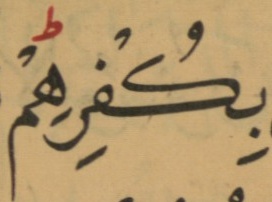 بِكُفْرِهِمْ ۖ ط